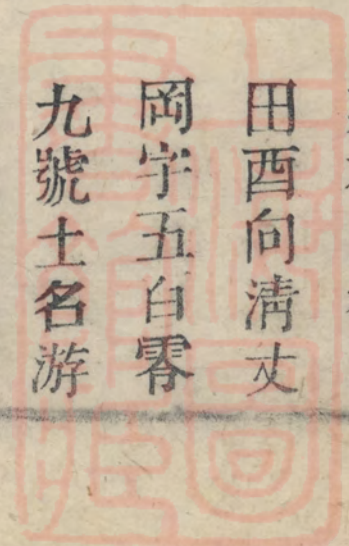 田酉向淸丈
岡字五百零
九號土名游